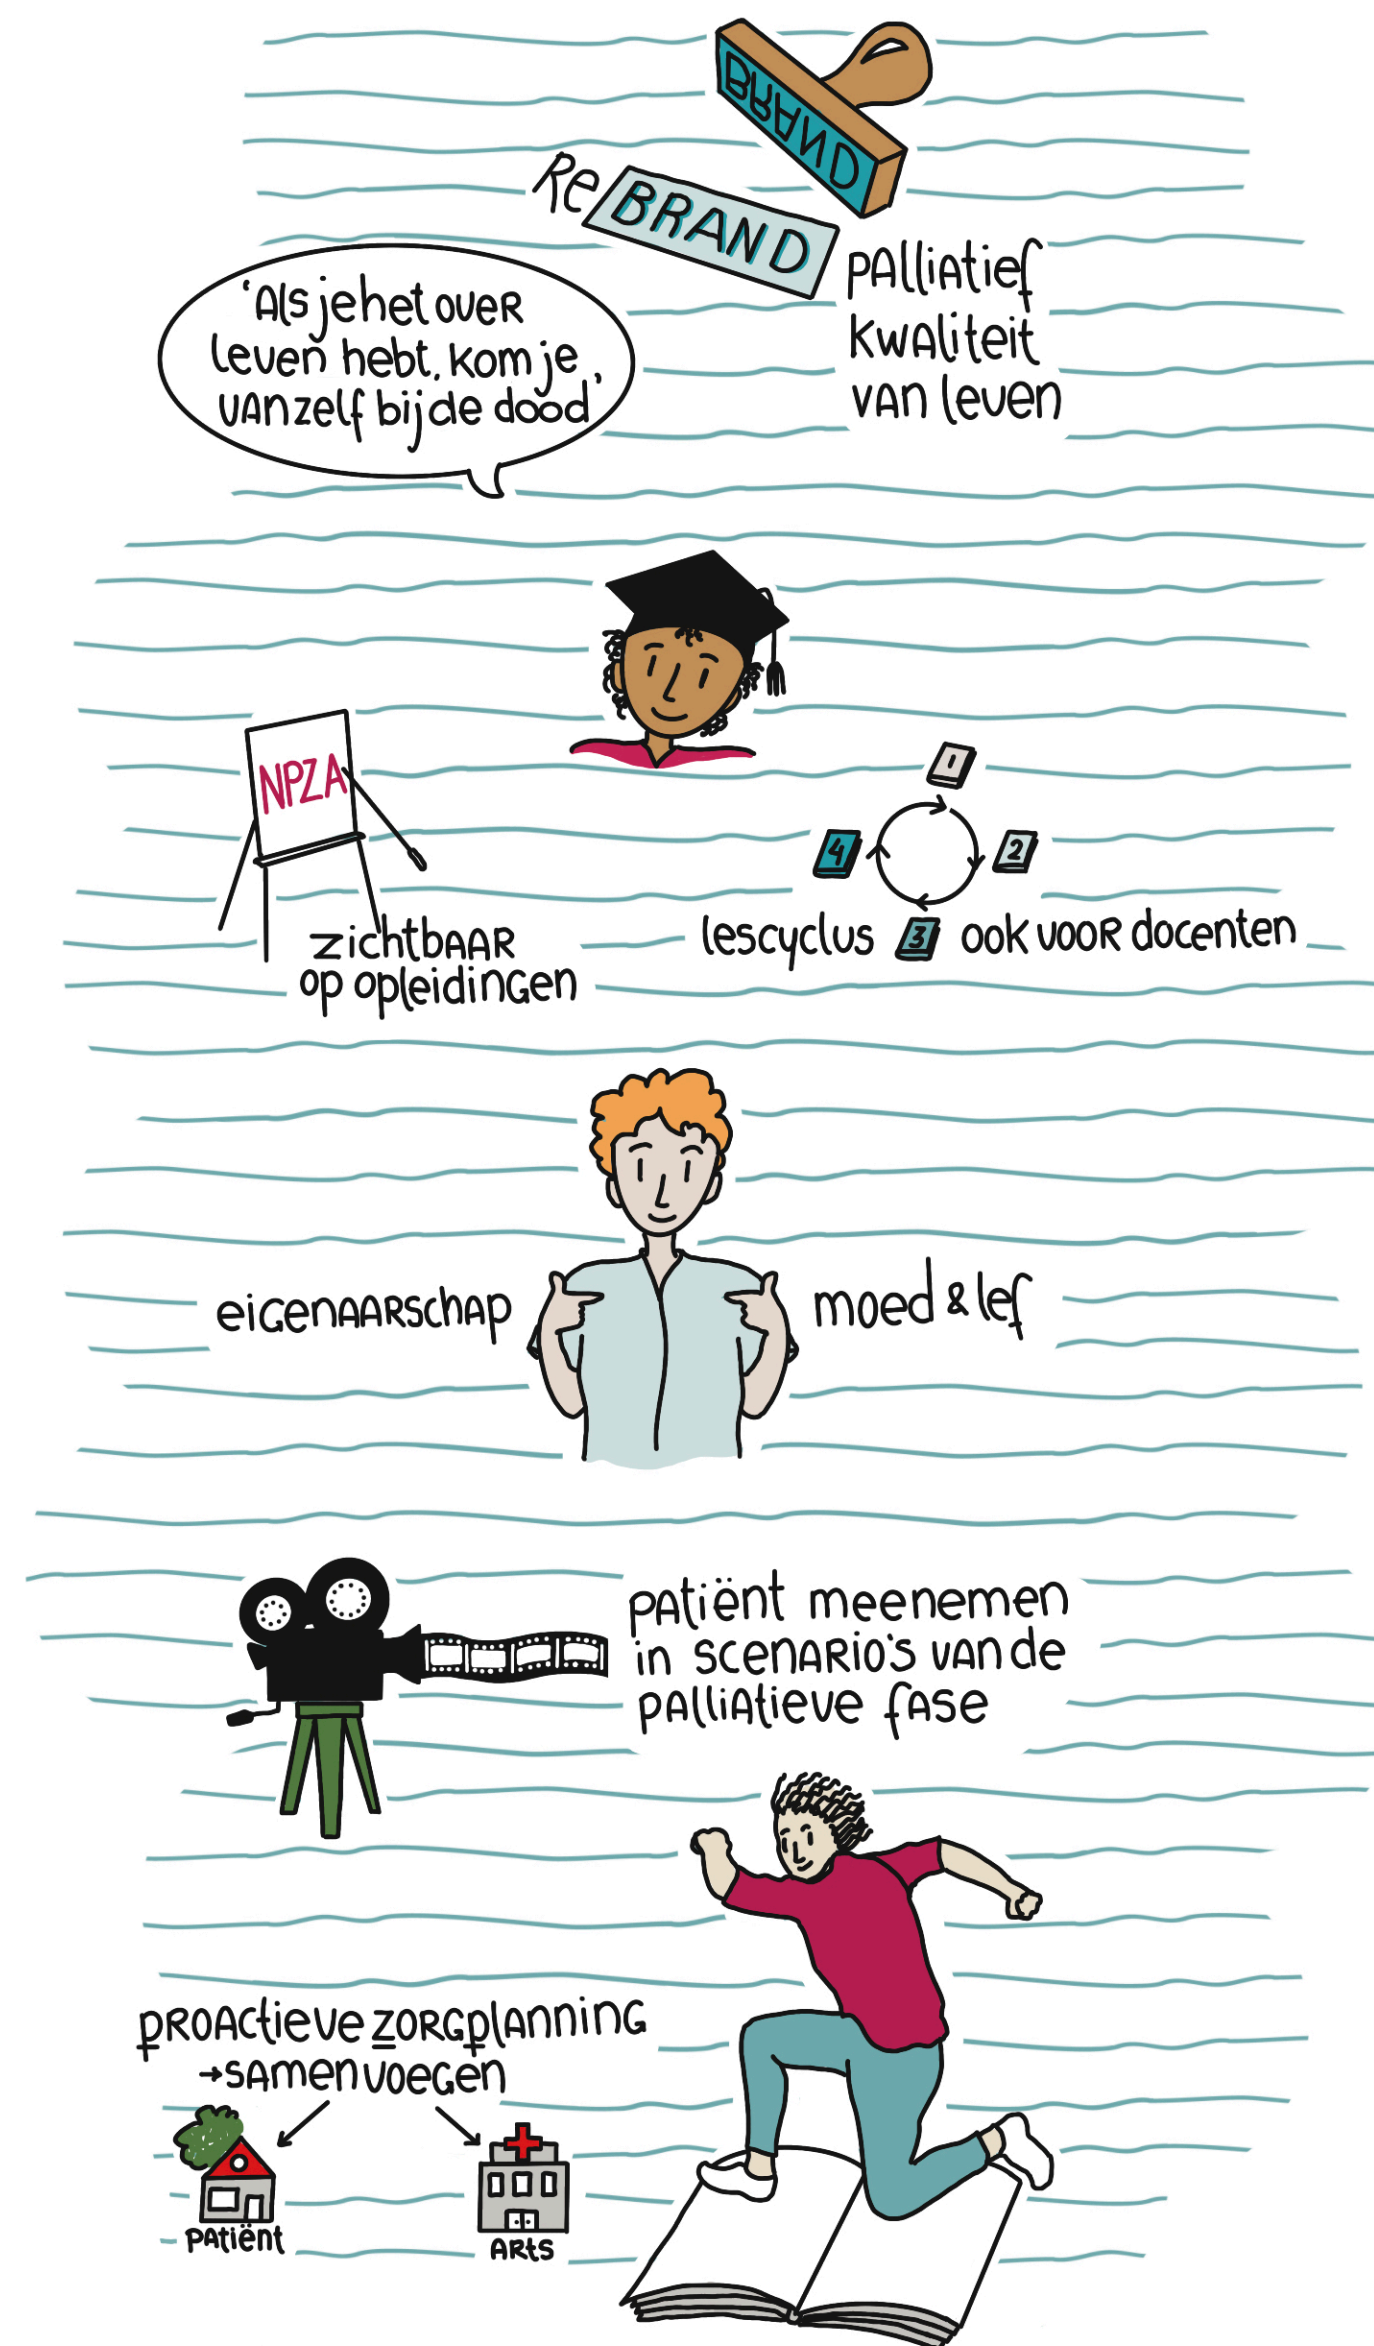 BRAND
Re BRAND
palliatief
kwaliteit
van leven
'Als je het over
leven hebt, kom je
vanzelf bij de dood'
NPZA
zichtbaar
op opleidingen
1
2
3
4
lescyclus
ook voor docenten
eigenaarschap
moed & lef
patiënt meenemen
in scenario's van de
palliatieve fase
proactieve zorgplanning
→samenvoegen
patiënt
arts